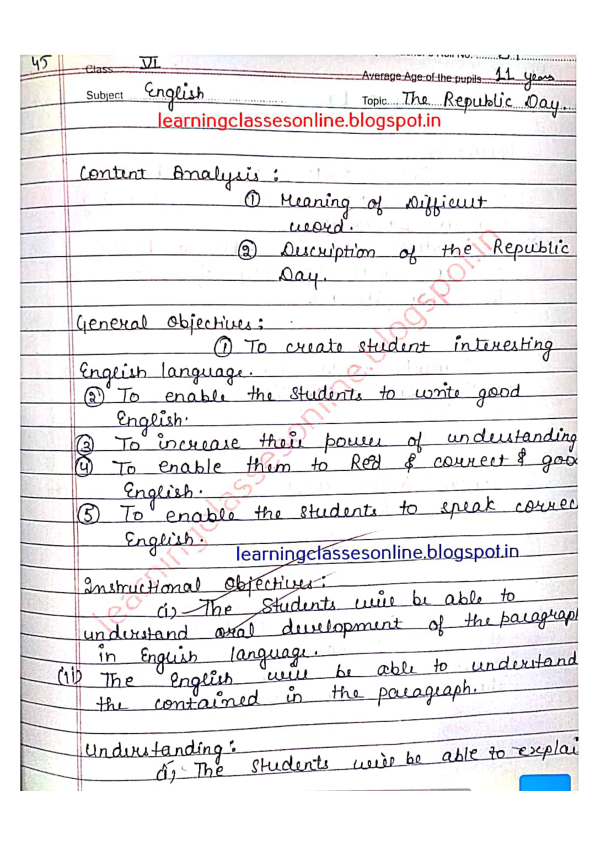 45
Class VI
Average Age of the pupils 11 years
Subject English
Topic The Republic Day.
learningclassesonline.blogspot.in
Content Analysis :
① Meaning of Difficult
word.
② Description of the Republic
Day.
General Objectives :
① To create student interesting
English language.
② To enable the students to write good
English.
③ To increase their power of understanding
④ To enable them to Red & correct & goo
English.
⑤ To enable the students to speak correc
English.
learningclassesonline.blogspot.in
Instructional Objectives :
(i) The Students will be able to
understand oral development of the paragraph
in English language.
(ii) The English will be able to understand
the contained in the paragraph.
Understanding :
(i) The students will be able to explai
learningclassesonline.blogspot.in